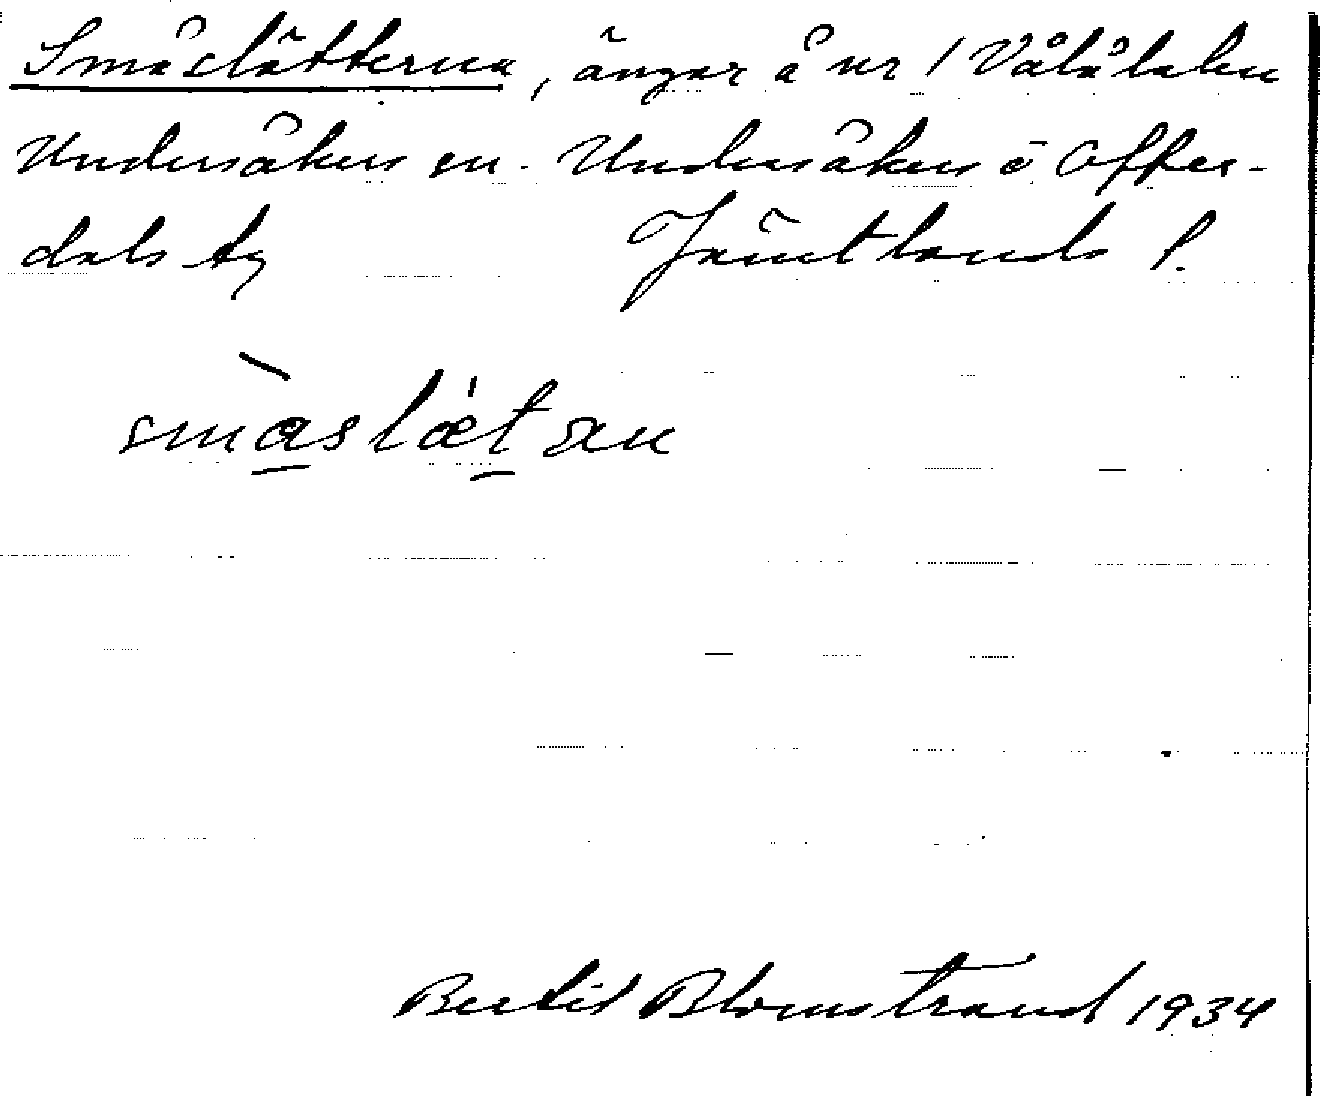 Småslätterna, ängar å nr 1 Vålådalen
Undersåkers sn. Undersåkers o Offer-
dals tg Jämtlands l.
småslætan
Bertil Blomstrand 1934